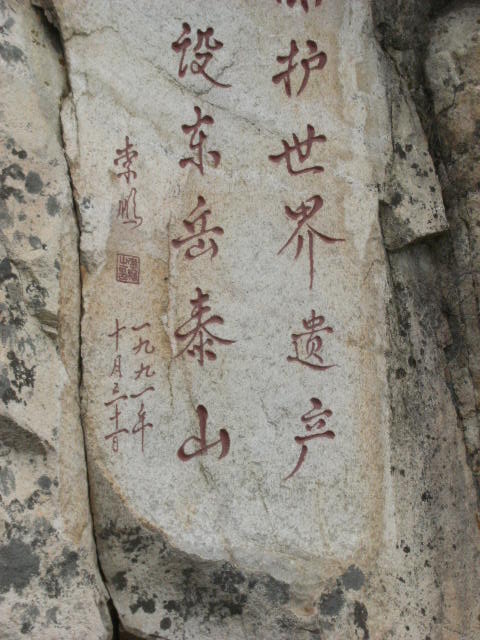 护世界遗产
设东岳泰山
李鹏
一九九一年
十月三十日